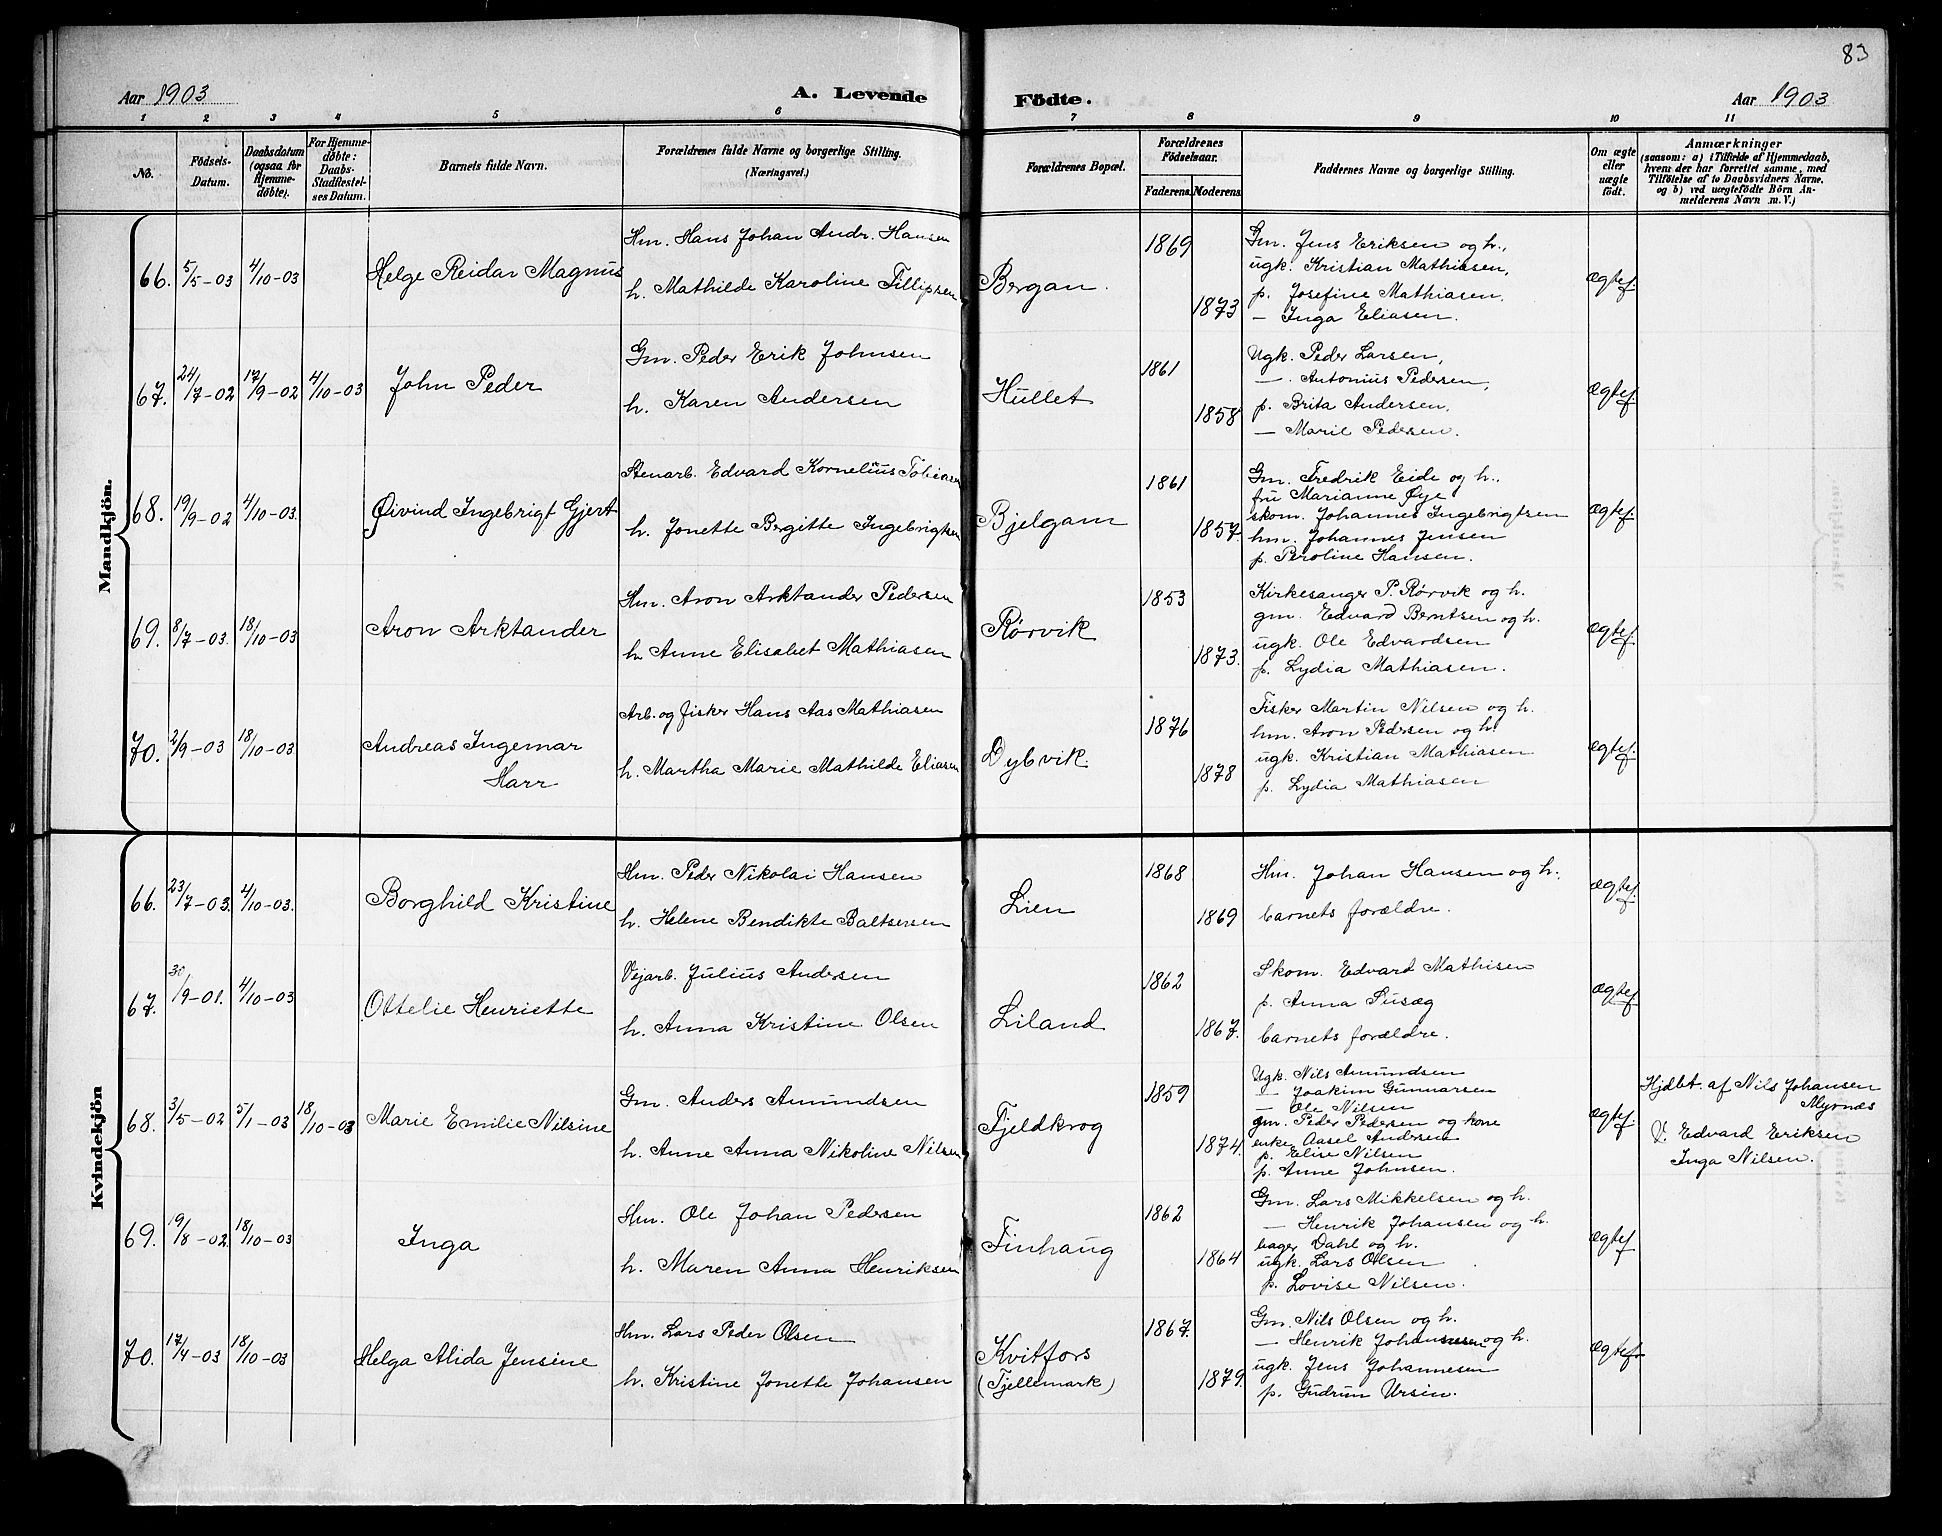 83
Aar 1903
A. Levende
Födte.
Aar 1903
1 2 3 4 5 6 7 8 9 10 11
No.
Födsels-
Datum.
Daabsdatum
(ogsaa för
Hjemme-
döbte).
For Hjemme-
döbte:
Daabs-
Stadfæstel-
ses Datum.
Barnets fulde Navn.
Forældrenes fulde Navne og borgerlige Stilling.
(Næringsvei.)
Forældrenes Bopæl.
Forældrenes
Födselsaar.
Faderens. Moderens.
Faddernes Navne og borgerlige Stilling.
Om ægte
eller
uægte
födt.
Anmærkninger
(saasom: a) i Tilfælde af Hjemmedaab,
hvem der har forrettet samme, med
Tilföielse af to Daabsvidners Navne,
og b) ved uægtefödte Börn An-
melderens Navn m. V.)
Mandkjön.
66. 5/5-03 4/10-03 Helge Reidar Magnus
Hm. Hans Johan Andr. Hansen
h. Mathilde Karoline Fillipsen
Bergan.
1869
1873
Gm. Jens Eriksen og h.,
ugk. Kristian Mathiasen,
p. Josefine Mathiasen,
— Inga Eliasen.
ægtef.
67. 24/7-02 17/9-02 4/10-03 John Peder
Gm. Peder Erik Johnsen
h. Karen Andersen
Hullet
1861
1858
Ugk. Peder Larsen,
—. Antonius Pedersen,
p. Brita Andersen,
— Marie Pedersen.
ægtef.
68. 19/9-02 4/10-03. Øivind Ingebrigt Gjert
Stenarb. Edvard Kornelius Tobiasen
h. Jonette Bergitte Ingebrigtsen
Bjelgam
1861
1857
Gm. Fredrik Eide og h.,
fru Marianne Øye
skom. Johannes Ingebrigtsen
hm. Johannes Jensen
p. Peroline Hansen.
ægtef.
69. 8/7-03. 18/10-03 Aron Arktander
Hm. Aron Arktander Pedersen
h. Anne Elisabet Mathiasen
Rørvik
1853
1873.
Kirkesanger P. Rørvik og h.
gm. Edvard Berntsen og h.
ugk. Ole Edvardsen
p. Lydia Mathiasen.
ægtef.
70. 2/9-03 18/10-03 Andreas Ingemar
Harr
Arb. og fisker Hans Aas Mathiasen
h. Martha Marie Mathilde Eliasen
Dybvik.
1876
1878
Fisker Martin Nilsen og h.
hm. Aron Pedersen og h.
ugk. Kristian Mathiasen
p. Lydia Mathiasen
ægtef.
Kvindekjön
66. 23/7-03. 4/10-03. Borghild Kristine
Hm. Peder Nikolai Hansen
h. Helene Bendikte Baltsersen
Lien
1868
1869
Hm. Johan Hansen og h.
barnets forældre.
ægtef.
67. 30/9-01. 4/10-03 Ottelie Henriette
Vejarb. Julius Andersen
h. Anna Kristine Olsen
Liland
1862
1867.
Skom. Edvard Mathisen
p. Anna Susæg
barnets forældre.
ægtef
68. 3/5-02 5/1-03 18/10-03 Marie Emilie Nilsine
Gm. Anders Amundsen
h. Anne Anna Nikoline Nilsen
Fjeldkrog
1859
1874.
Ugk. Nils Amundsen
— Joakim Gunnarsen
— Ole Nilsen
gm. Peder Pedersen og kone
enke Aasel Andersen
p. Elise Nilsen
p. Anne Johnsen.
ægtef.
Hjdbt. af Nils Johansen
Myrnæs
V. Edvard Eriksen
Inga Nilsen.
69. 19/8-02. 18/10-03 Inga
Hm. Ole Johan Pedersen
h. Maren Anna Henriksen
Finhaug
1862
1864
Gm. Lars Mikkelsen og h.
— Henrik Johansen og h.
bager Dahl og h.
ugk. Lars Olsen
p. Lovise Nilsen.
ægtef
70. 17/4-03 18/10-03 Helga Alida Jensine
Hm. Lars Peder Olsen
h. Kristine Jonette Johansen
Kvitfors
(Fjellemark)
1867.
1879.
Gm. Nils Olsen og h.
— Henrik Johansen og h.
ugk. Jens Johannesen
p. Gudrun Ursin.
ægtef.